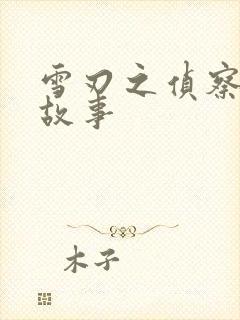 雪刃之侦察
故事
木子